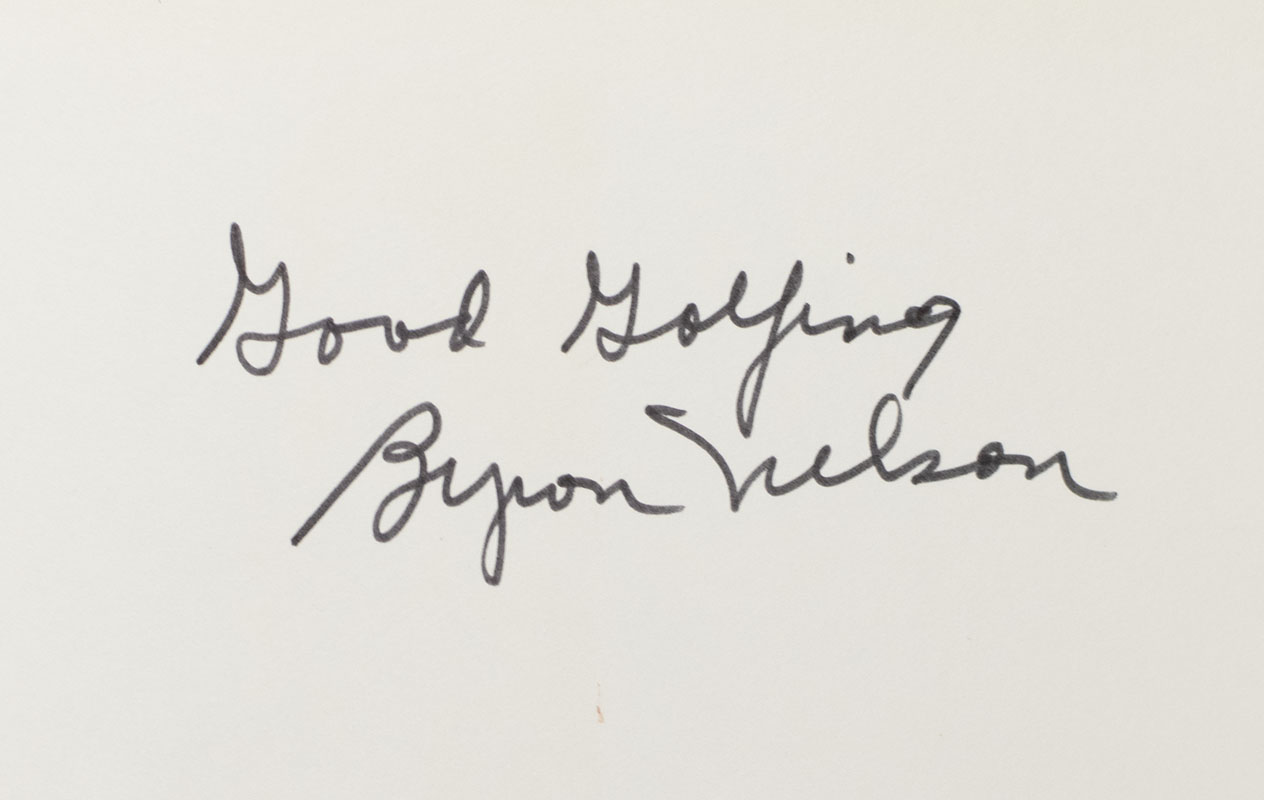 Good Golfing
Byron Nelson